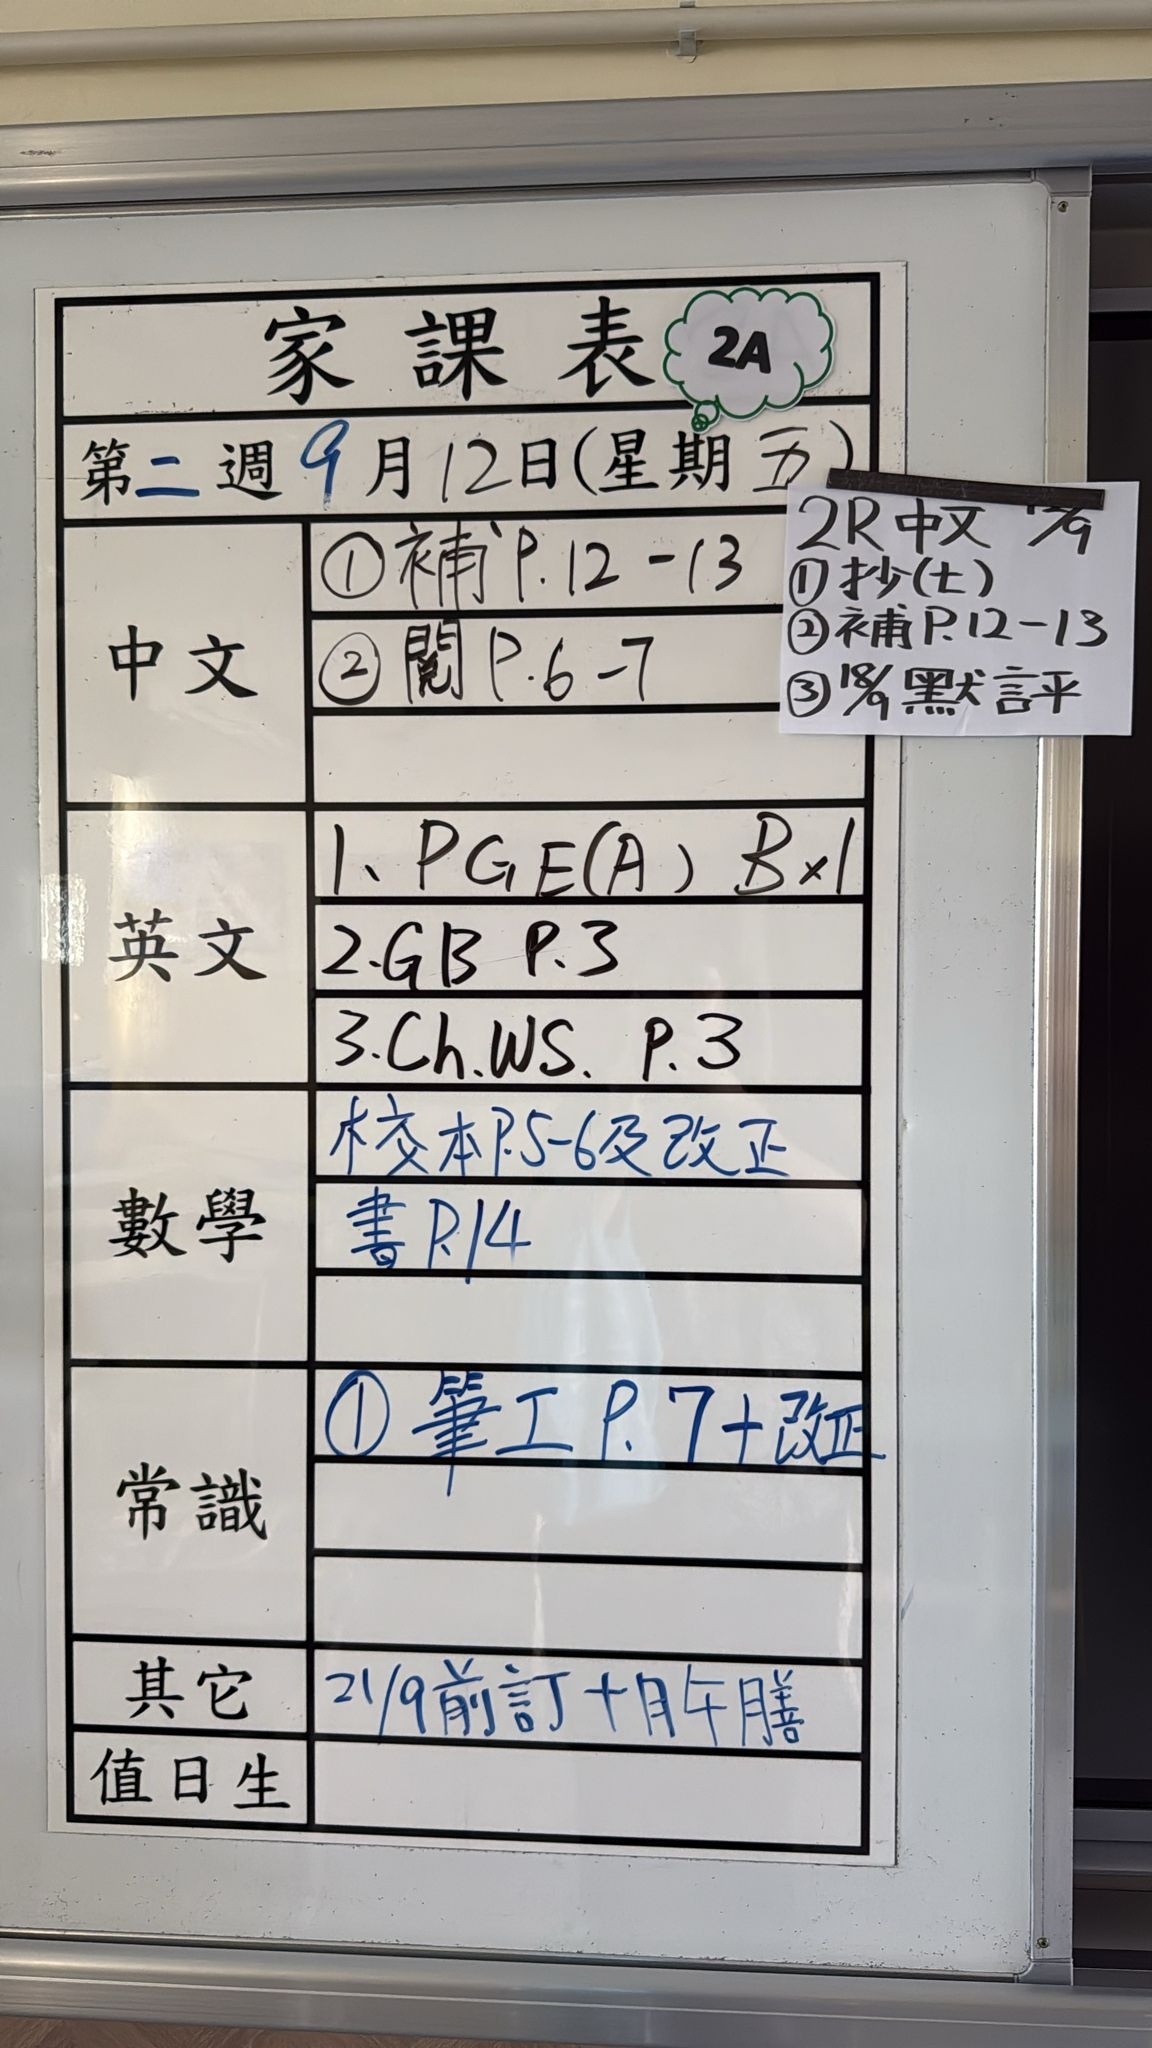 家課表 2A
第二週 9月12日(星期五)
中文
①補P.12-13
②閱P.6-7
2R中文
①抄(七)
②補P.12-13
③18/9默評
英文
1、PGE(A) B×1
2.GB P.3
3.Ch.WS. P.3
數學
校本P.5-6及改正
書P.14
常識
①筆工P.7+改正
其它
21/9前訂十月午膳
值日生